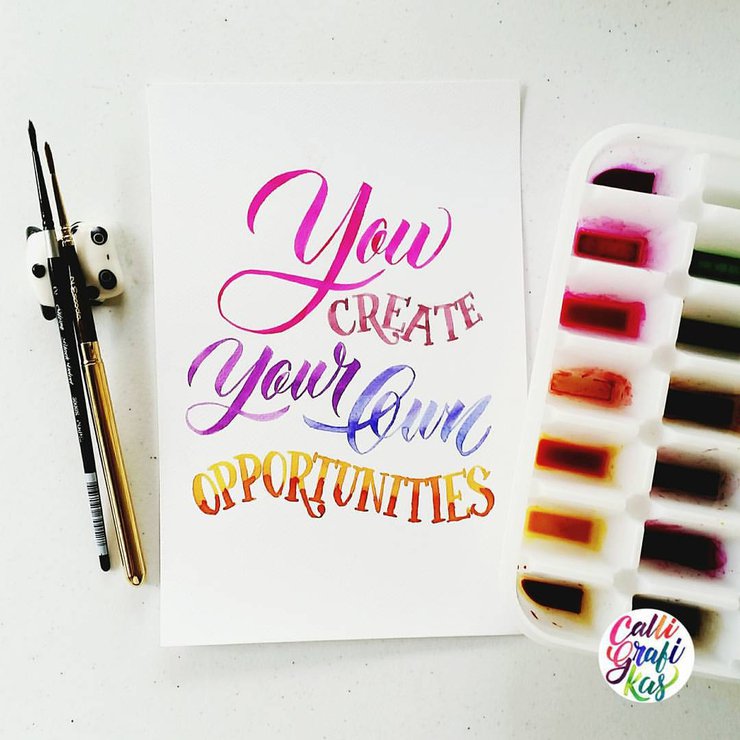 You
CREATE
Your Own
OPPORTUNITIES
Calli
Grafi
kas